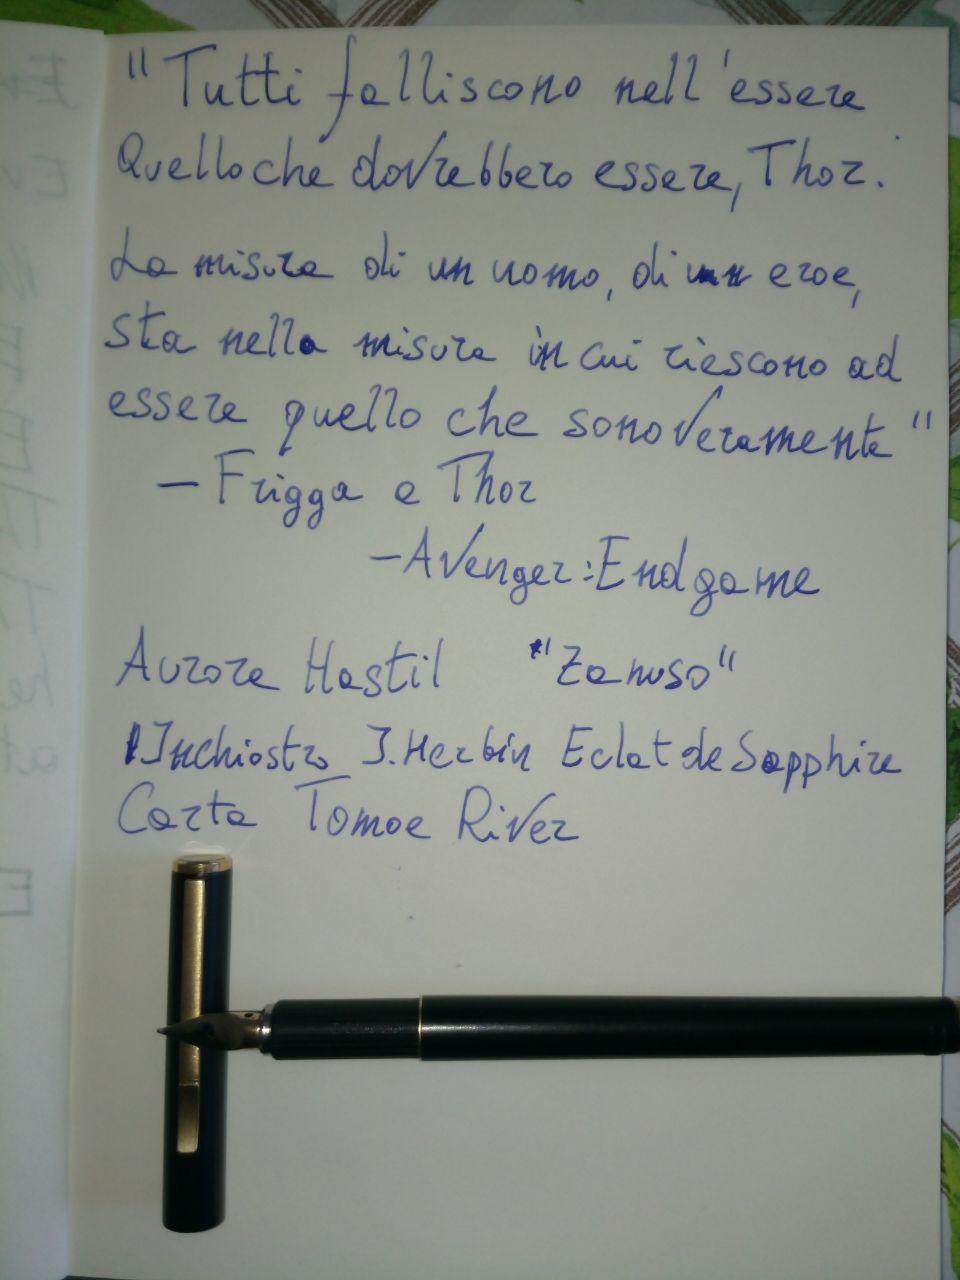 "Tutti falliscono nell'essere
Quello che dovrebbero essere, Thor.
La misura di un uomo, di un eroe,
sta nella misura in cui riescono ad
essere quello che sono veramente"
- Frigga e Thor
- Avenger: Endgame
Aurora Hastil "Zanuso"
Inchiostro J. Herbin Eclat de Sapphire
Carta Tomoe River